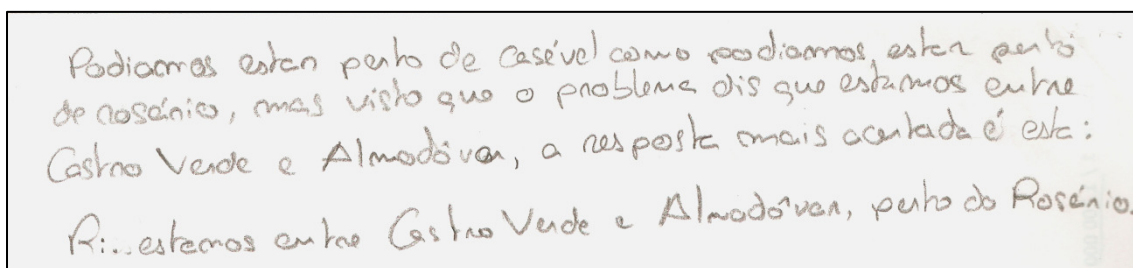 Podiamos estar perto de Casével como podiamos, estar perto
de rosário, mas visto que o problema dis que estamos entre
Castro Verde e Almodôvar, a resposta mais acertada é esta:
R:.. estamos entre Castro Verde e Almodôvar, perto do Rosário.